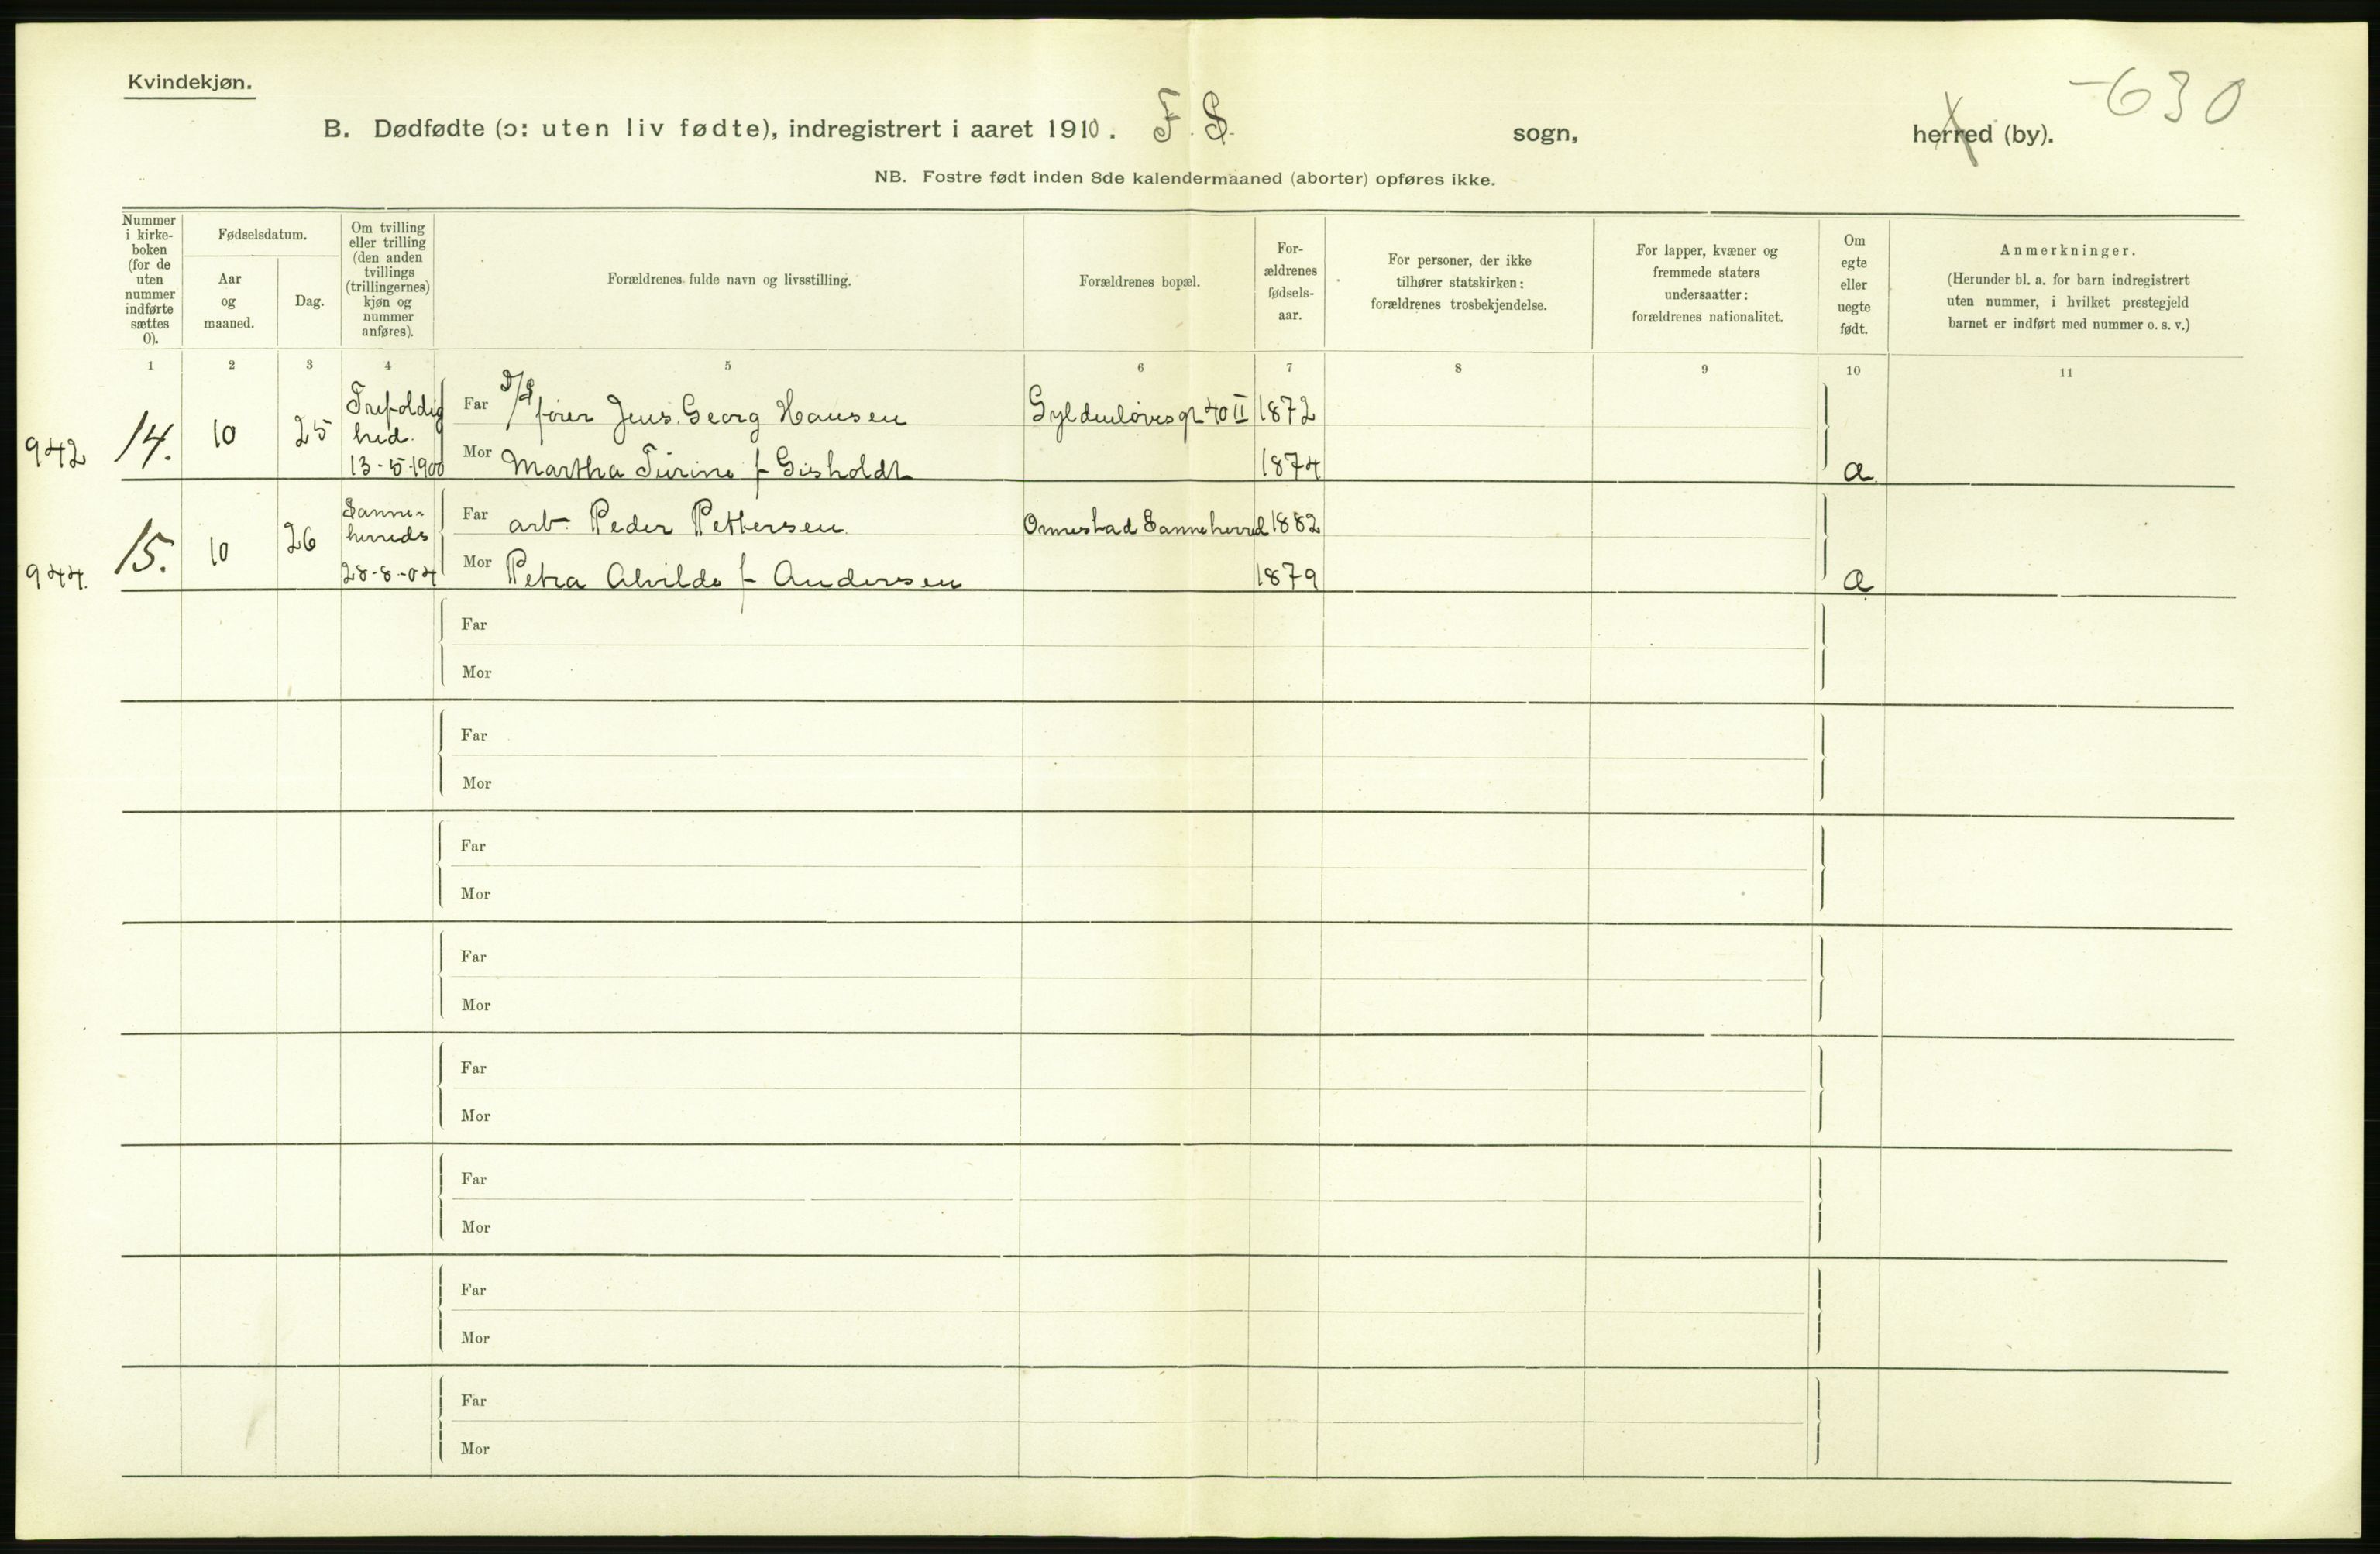 Kvindekjøn.
-630
B. Dødfødte (ɔ: uten liv fødte), indregistrert i aaret 1910. F. S. sogn, herred (by).
NB. Fostre født inden 8de kalendermaaned (aborter) opføres ikke.
Nummer i kirke-boken (for de uten nummer indførte sættes 0).
Fødselsdatum.
Aar og maaned.
Dag.
Om tvilling eller trilling (den anden tvillings (trillingernes) kjøn og nummer anføres).
Forældrenes fulde navn og livsstilling.
Forældrenes bopæl.
For-ældrenes fødsels-aar.
For personer, der ikke tilhører statskirken: forældrenes trosbekjendelse.
For lapper, kvæner og fremmede staters undersaatter: forældrenes nationalitet.
Om egte eller uegte født.
Anmerkninger.
(Herunder bl. a. for barn indregistrert uten nummer, i hvilket prestegjeld barnet er indført med nummer o. s. v.)
1 2 3 4 5 6 7 8 9 10 11
942 14. 10 25 Trefoldig hed. 13-5-1900 Far fører Jens Georg Hansen Gyldenløvesgt 40 II 1872
Mor Martha f. Gisholdt 1874 a
944. 15. 10 26 Sanne-herreds 28-8-04 Far arb. Peder Pettersen Ormestad Sanneherred 1882
Mor Petra Alvilde f. Andersen 1879 a
Far
Mor
Far
Mor
Far
Mor
Far
Mor
Far
Mor
Far
Mor
Far
Mor
Far
Mor